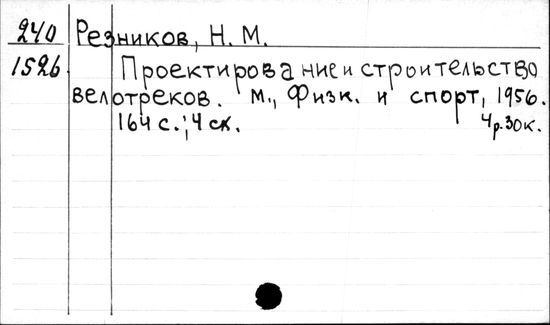 240 Резников, Н. М.
1526. Проектирование и строительство
велотреков. М., Физк. и спорт, 1956.
164 с.; Ч ск. 4р.30к.